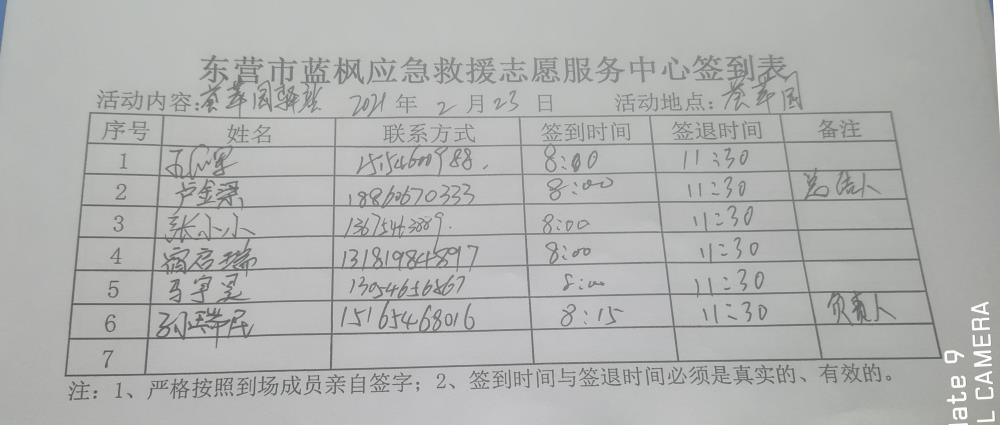 东营市蓝枫应急救援志愿服务中心签到表
活动内容:荟萃园驿站 2021年2月23日 活动地点:荟萃园
序号 姓名 联系方式 签到时间 签退时间 备注
1 15154600988. 8:00 11:30
2 卢金梁 18860670333 8:00 11:30 总结人
3 张小小 13675463889. 8:00 11:30
4 宿启瑞 13181984897 8:00 11:30
5 马宇灵 13054656867 8:00 11:30
6 孙洪民 15165468016 8:15 11:30 负责人
7
注:1、严格按照到场成员亲自签字;2、签到时间与签退时间必须是真实的、有效的。
late 9
L CAMERA